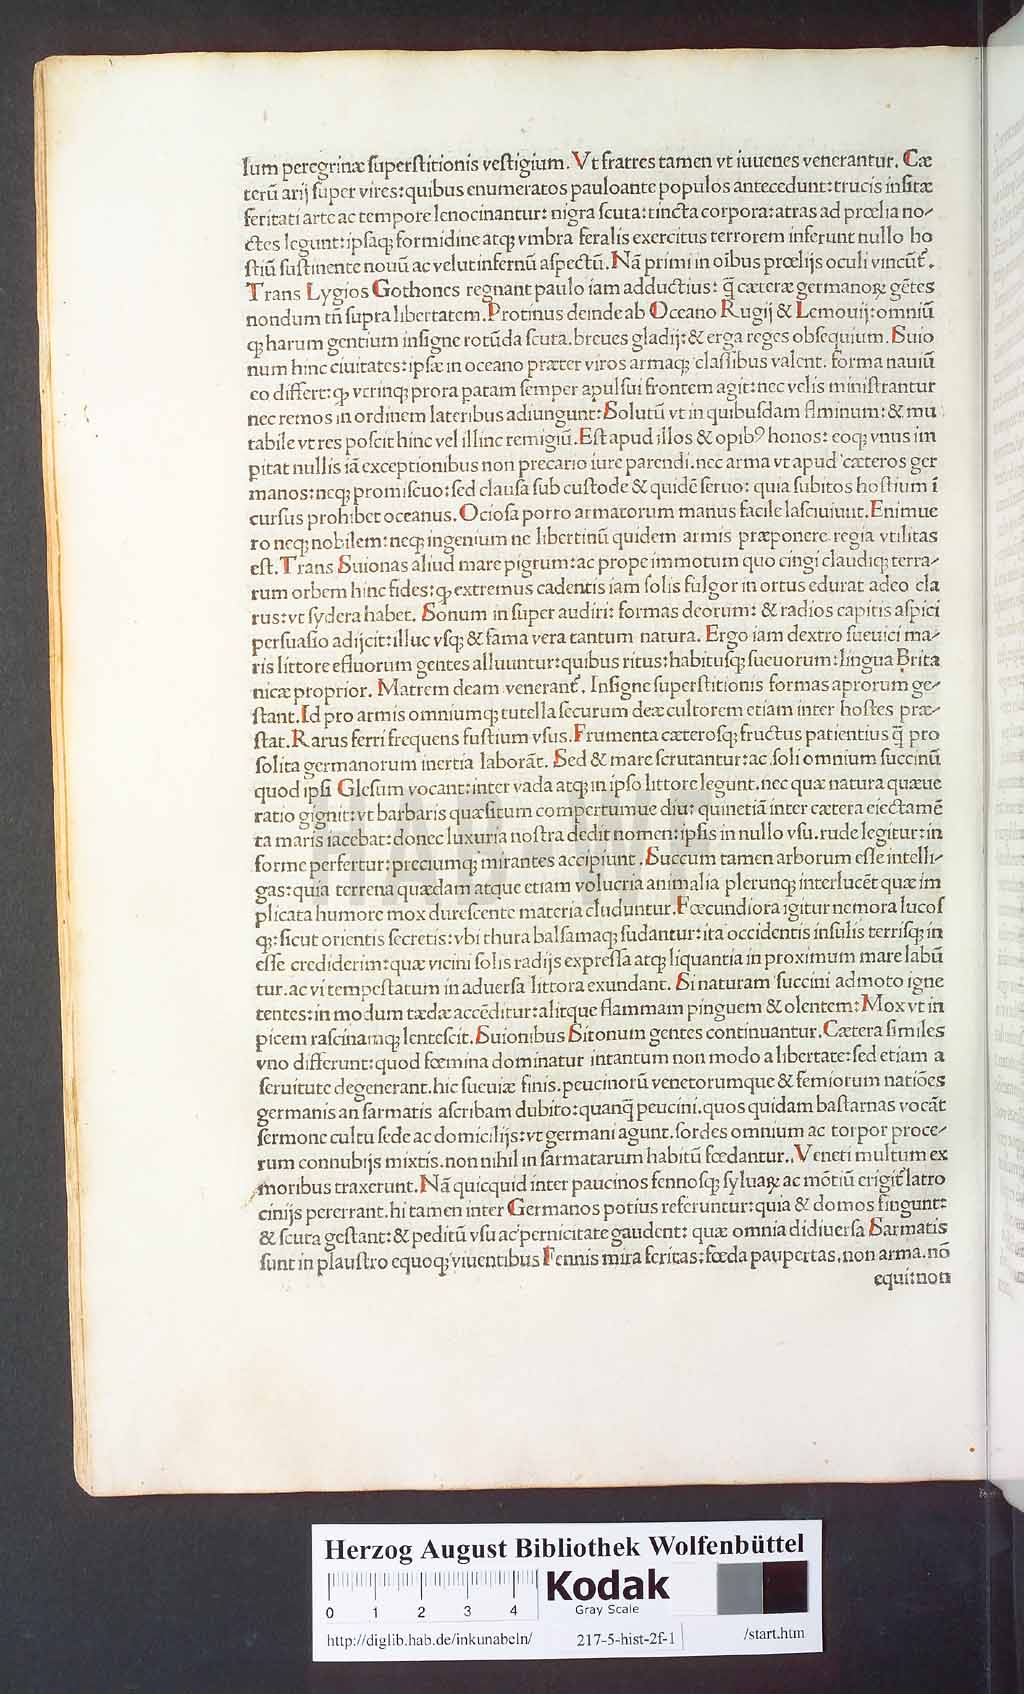 lum peregrinæ ſuperſtitionis veſtigium. Vt fratres tamen vt iuuenes venerantur. Cæ
terũ arij ſuper vires: quibus enumeratos pauloante populos antecedunt: trucis inſitæ
feritati arte ac tempore lenocinantur: nigra ſcuta: tincta corpora: atras ad prœlia no-
ctes legunt: ipſaqꝫ formidine atqꝫ vmbra feralis exercitus terrorem inferunt nullo ho
ſtiũ ſuſtinente nouũ ac velut infernũ aſpectũ. Nã primi in oibus prœlijs oculi vincũt᷑.
Trans Lygios Gothones regnant paulo iam adductius: q̃ cæteræ germanoꝝ gẽtes
nondum tñ ſupra libertatem. Protinus deinde ab Oceano Rugij & Lemouij: omniũ
qꝫ harum gentium inſigne rotũda ſcuta. breues gladij: & erga reges obſequium. Suio
num hinc ciuitates: ipſæ in oceano præter viros armaqꝫ claſſibus valent. forma nauiũ
eo differt: ꝙ vtrinqꝫ prora patam ſemper apulſui frontem agit: nec velis miniſtrantur
nec remos in ordinem lateribus adiungunt: Solutũ vt in quibuſdam fluminum: & mu
tabile vt res poſcit hinc vel illinc remigiũ. Eſt apud illos & opibꝰ honos: eoqꝫ vnus im
pitat nullis iã exceptionibus non precario iure parendi. nec arma vt apud cæteros ger
manos: neqꝫ promiſcuo: ſed clauſa ſub cuſtode & quidẽ ſeruo: quia ſubitos hoſtium ĩ
curſus prohibet oceanus. Ocioſa porro armatorum manus facile laſciuiunt. Enimue
ro neqꝫ nobilem: neqꝫ ingenium ne libertinũ quidem armis præponere regia vtilitas
eſt. Trans Suionas aliud mare pigrum: ac prope immotum quo cingi claudiqꝫ terra-
rum orbem hinc fides: ꝙ extremus cadentis iam ſolis fulgor in ortus edurat adeo cla
rus: vt ſydera habet. Sonum in ſuper audiri: formas deorum: & radios capitis aſpici
perſuaſio adijcit: illuc vſqꝫ & fama vera tantum natura. Ergo iam dextro ſueuici ma-
ris littore eſtuorum gentes alluuntur: quibus ritus: habituſqꝫ ſueuorum: lingua Brita
nicæ proprior. Matrem deam venerant᷑. Inſigne ſuperſtitionis formas aprorum ge-
ſtant. Id pro armis omniumqꝫ tutella ſecurum deæ cultorem etiam inter hoſtes præ-
ſtat. Rarus ferri frequens fuſtium vſus. Frumenta cæteroſqꝫ fructus patientius q̃ pro
ſolita germanorum inertia laborãt. Sed & mare ſcrutantur: ac ſoli omnium ſuccinũ
quod ipſi Gleſum vocant: inter vada atqꝫ in ipſo littore legunt. nec quæ natura quæue
ratio gignit: vt barbaris quæſitum compertumue diu: quinetiã inter cætera eiectamẽ
ta maris iacebat: donec luxuria noſtra dedit nomen: ipſis in nullo vſu. rude legitur: in
forme perfertur: preciumqꝫ mirantes accipiunt. Succum tamen arborum eſſe intelli-
gas: quia terrena quædam atque etiam volucria animalia plerunqꝫ interlucẽt quæ im
plicata humore mox dureſcente materia cluduntur. Fœcundiora igitur nemora lucoſ
qꝫ: ſicut orientis ſecretis: vbi thura balſamaqꝫ ſudantur: ita occidentis inſulis terriſqꝫ in
eſſe crediderim: quæ vicini ſolis radijs expreſſa atqꝫ liquantia in proximum mare labũ
tur. ac vi tempeſtatum in aduerſa littora exundant. Si naturam ſuccini admoto igne
tentes: in modum tædæ accẽditur: alitque flammam pinguem & olentem: Mox vt in
picem raſcinamqꝫ lenteſcit. Suionibus Sitonum gentes continuantur. Cætera ſimiles
vno differunt: quod fœmina dominatur intantum non modo a libertate: ſed etiam a
ſeruitute degenerant. hic ſueuiæ finis. peucinorũ venetorumque & femiorum natiões
germanis an ſarmatis aſcribam dubito: quanq̃ peucini. quos quidam baſtarnas vocãt
ſermone cultu ſede ac domicilijs: vt germani agunt. ſordes omnium ac torpor proce-
rum connubijs mixtis. non nihil in ſarmatarum habitũ fœdantur. Veneti multum ex
moribus traxerunt. Nã quicquid inter paucinos fennoſqꝫ ſyluaꝝ ac mõtiũ erigit᷑ latro
cinijs pererrant. hi tamen inter Germanos potius referuntur: quia & domos fingunt:
& ſcuta geſtant: & peditũ vſu ac pernicitate gaudent: quæ omnia didiuerſa Sarmatis
ſunt in plauſtro equoqꝫ viuentibus Fennis mira feritas: fœda paupertas. non arma. nõ
equi: non
Herzog August Bibliothek Wolfenbüttel
0 1 2 3 4
Kodak
Gray Scale
http://diglib.hab.de/inkunabeln/ 217-5-hist-2f-1 /start.htm